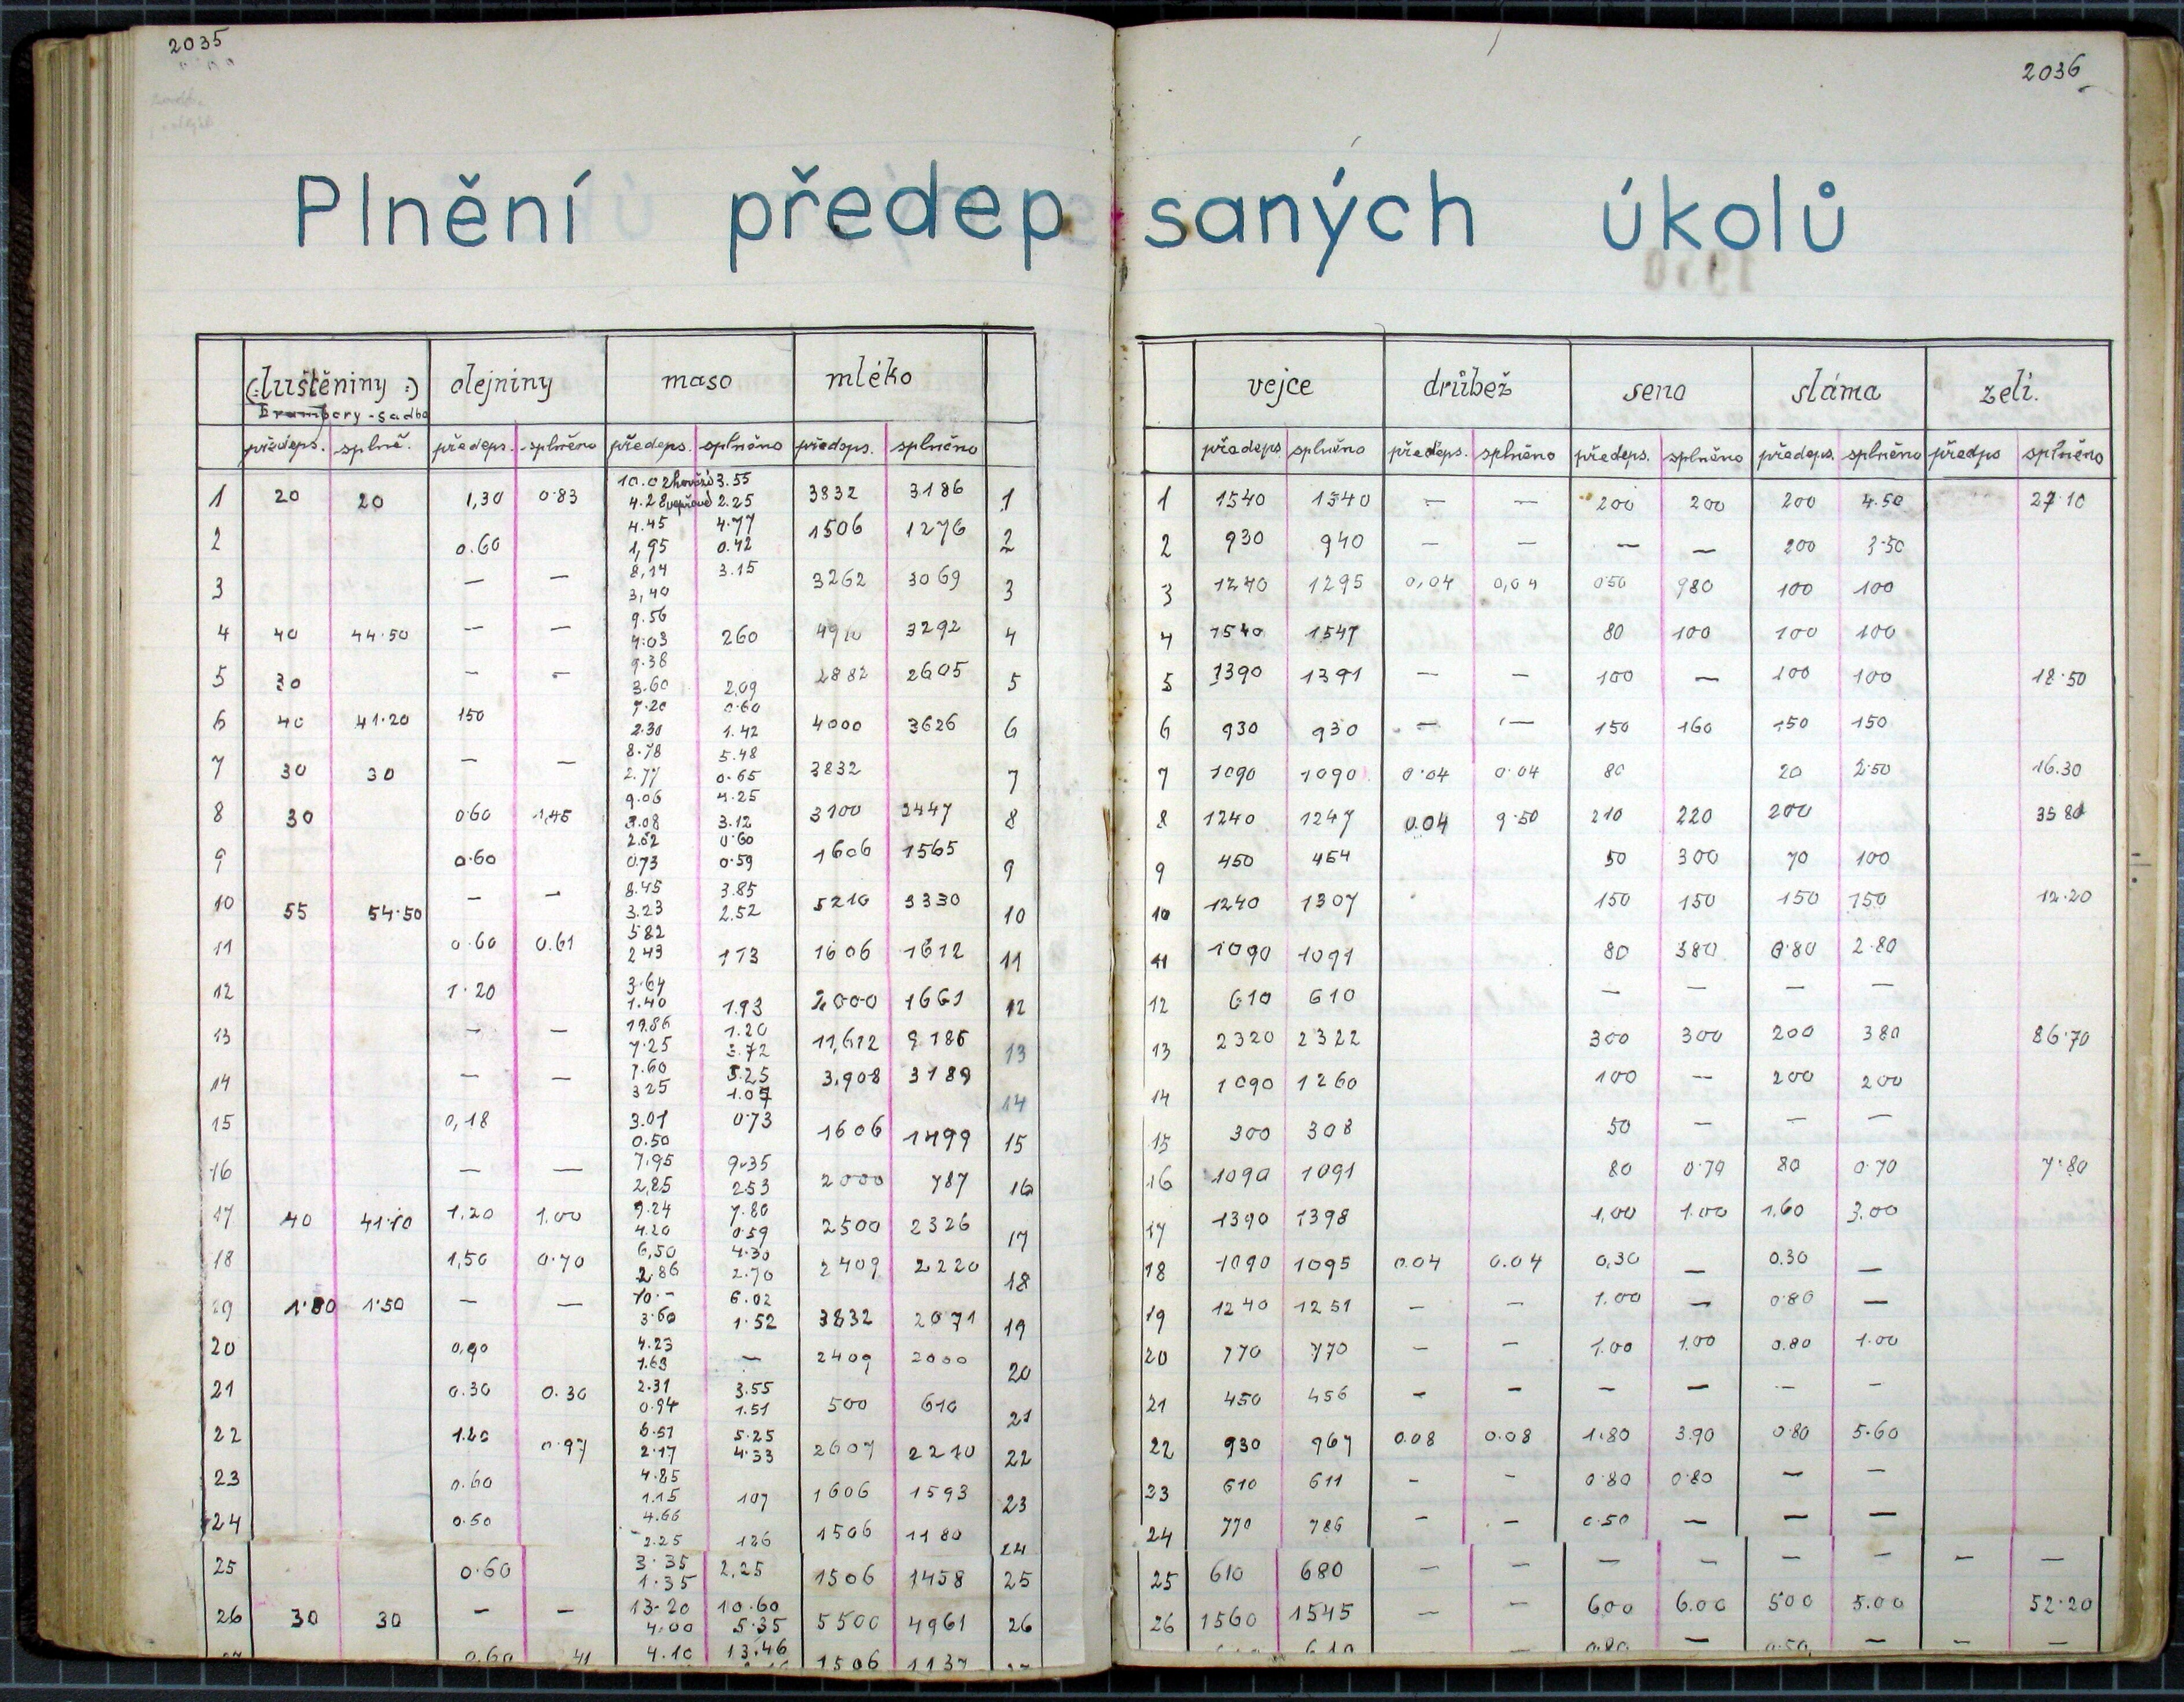 2035
2036
Plnění předepsaných úkolů
(:luštěniny:) olejniny maso mléko vejce drůbež seno sláma zelí.
Brambory - sadba
předeps. splně. předeps. splněno předeps. splněno předeps. splněno předeps splněno předeps. splněno předeps. splněno předeps. splněno předps splněno
10.02 hovězí 3.55
1 20 20 1,30 0.83 4.28 vepřové 2.25 3832 3186 1 1 1540 1340 — — 200 200 200 4.50 27.10
4.45 4.77
2 0.60 1,95 0.42 1506 1276 2 2 930 940 — — — — 200 3.50
8,14 3.15
3 — — 3,40 3262 3069 3 3 1240 1295 0,04 0,04 050 980 100 100
9.56
4 40 44.50 — — 4.03 260 4910 3292 4 4 1540 1547 80 100 100 100
9.38
5 30 — — 3.60 2,09 2882 2605 5 5 1390 1391 — — 100 — 100 100 18.50
7.20 0.60
6 40 41.20 150 2.30 1.42 4000 3626 6 6 930 930 — — 150 160 150 150
8.78 5.48
7 30 30 — — 2.77 0.65 3832 7 7 1090 1090 0.04 0.04 80 20 2.50 16.30
9.06 4.25
8 30 0.60 1,45 3.08 3.12 3100 2447 8 8 1240 1247 0.04 9.50 210 220 200 35 80
2.02 0.60
9 0.60 0.73 0.59 1606 1565 9 9 450 454 50 300 70 100
8.45 3.85
10 55 54.50 — — 3.23 2.52 5210 3330 10 10 1240 1307 150 150 150 150 12.20
5 82
11 0.60 0.61 2 43 173 1606 1612 11 11 1090 1091 80 380 0.80 2.80
3.64
12 1.20 1.40 1.93 2000 1661 12 12 610 610 — — — —
19.86 1.20
13 — — 7.25 3.72 11,612 9186 13 13 2320 2322 300 300 200 380 86.70
7.60 5.25
14 — — 3 25 1.07 3.908 3189 14 14 1090 1260 100 — 200 200
3.01 0.73
15 0,18 0.50 1606 1499 15 15 300 308 50 — — —
7,95 9.35
16 — — 2,85 253 2000 787 16 16 1090 1091 80 0.79 80 0.70 7.80
9.24 7.80
17 40 41.10 1,20 1.00 4.20 0.59 2500 2326 17 17 1390 1398 1,00 1.00 1.60 3.00
6,50 4.30
18 1,50 0.70 2.86 2.70 2409 2220 18 18 1090 1095 0.04 0.04 0,30 — 0.30 —
10.- 6.02
19 1.80 1.50 — — 3.60 1.52 3832 2071 19 19 1240 1251 — — 1.00 — 0.80 —
4.23
20 0,90 1.63 — 2409 2000 20 20 770 770 — — 1.00 1.00 0.80 1.00
2.31 3.55
21 0.30 0.30 0.94 1.51 500 610 21 21 450 456 — — — — — —
6.51 5.25
22 1.20 0.97 2.17 4.33 2607 2210 22 22 930 967 0.08 0.08 1.80 3.90 0.80 5.60
4.85
23 0.60 1.15 107 1606 1593 23 23 610 611 - - 0.80 0.80 — —
4.66
24 0.50 2.25 126 1506 1180 24 24 770 786 — — 0.50 — — —
3.35
25 0.60 1.35 2.25 1506 1458 25 25 610 680 — — — — — — — —
13.20 10.60
26 30 30 — — 4.00 5.35 5500 4961 26 26 1560 1545 — — 6.00 6.00 500 5.00 52.20
0.60 41 4.10 13.46 1506 1137 610 — 0.80 — 0.50 — — —